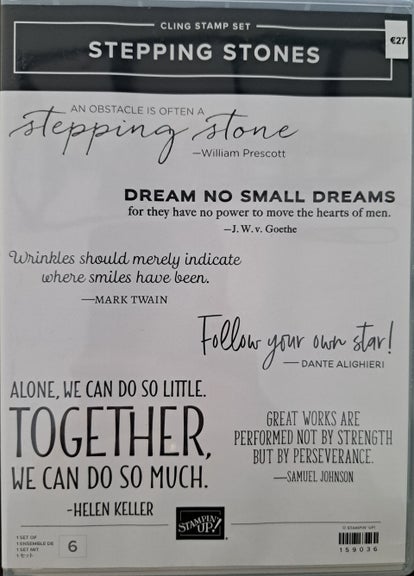 CLING STAMP SET
STEPPING STONES
€27
AN OBSTACLE IS OFTEN A
stepping stone
—William Prescott
DREAM NO SMALL DREAMS
for they have no power to move the hearts of men.
—J. W. v. Goethe
Wrinkles should merely indicate
where smiles have been.
—MARK TWAIN
Follow your own star!
—DANTE ALIGHIERI
ALONE, WE CAN DO SO LITTLE.
TOGETHER,
WE CAN DO SO MUCH.
-HELEN KELLER
GREAT WORKS ARE
PERFORMED NOT BY STRENGTH
BUT BY PERSEVERANCE.
—SAMUEL JOHNSON
STAMPIN' UP!
1 SET OF
1 ENSEMBLE DE
1 SET MIT
1 セット
6
© STAMPIN' UP!
159036